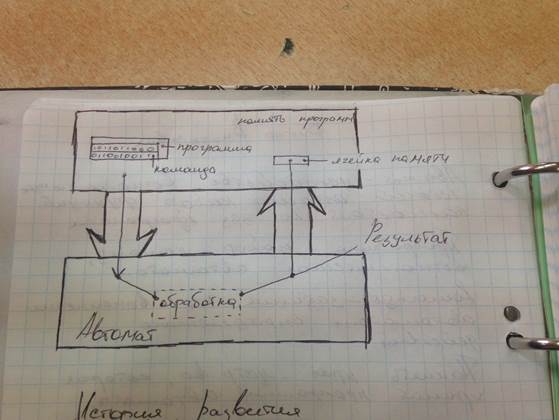 память программ
1011011000
программа
011001001
команда
ячейка памяти
Результат
обработка
Автомат
История развития